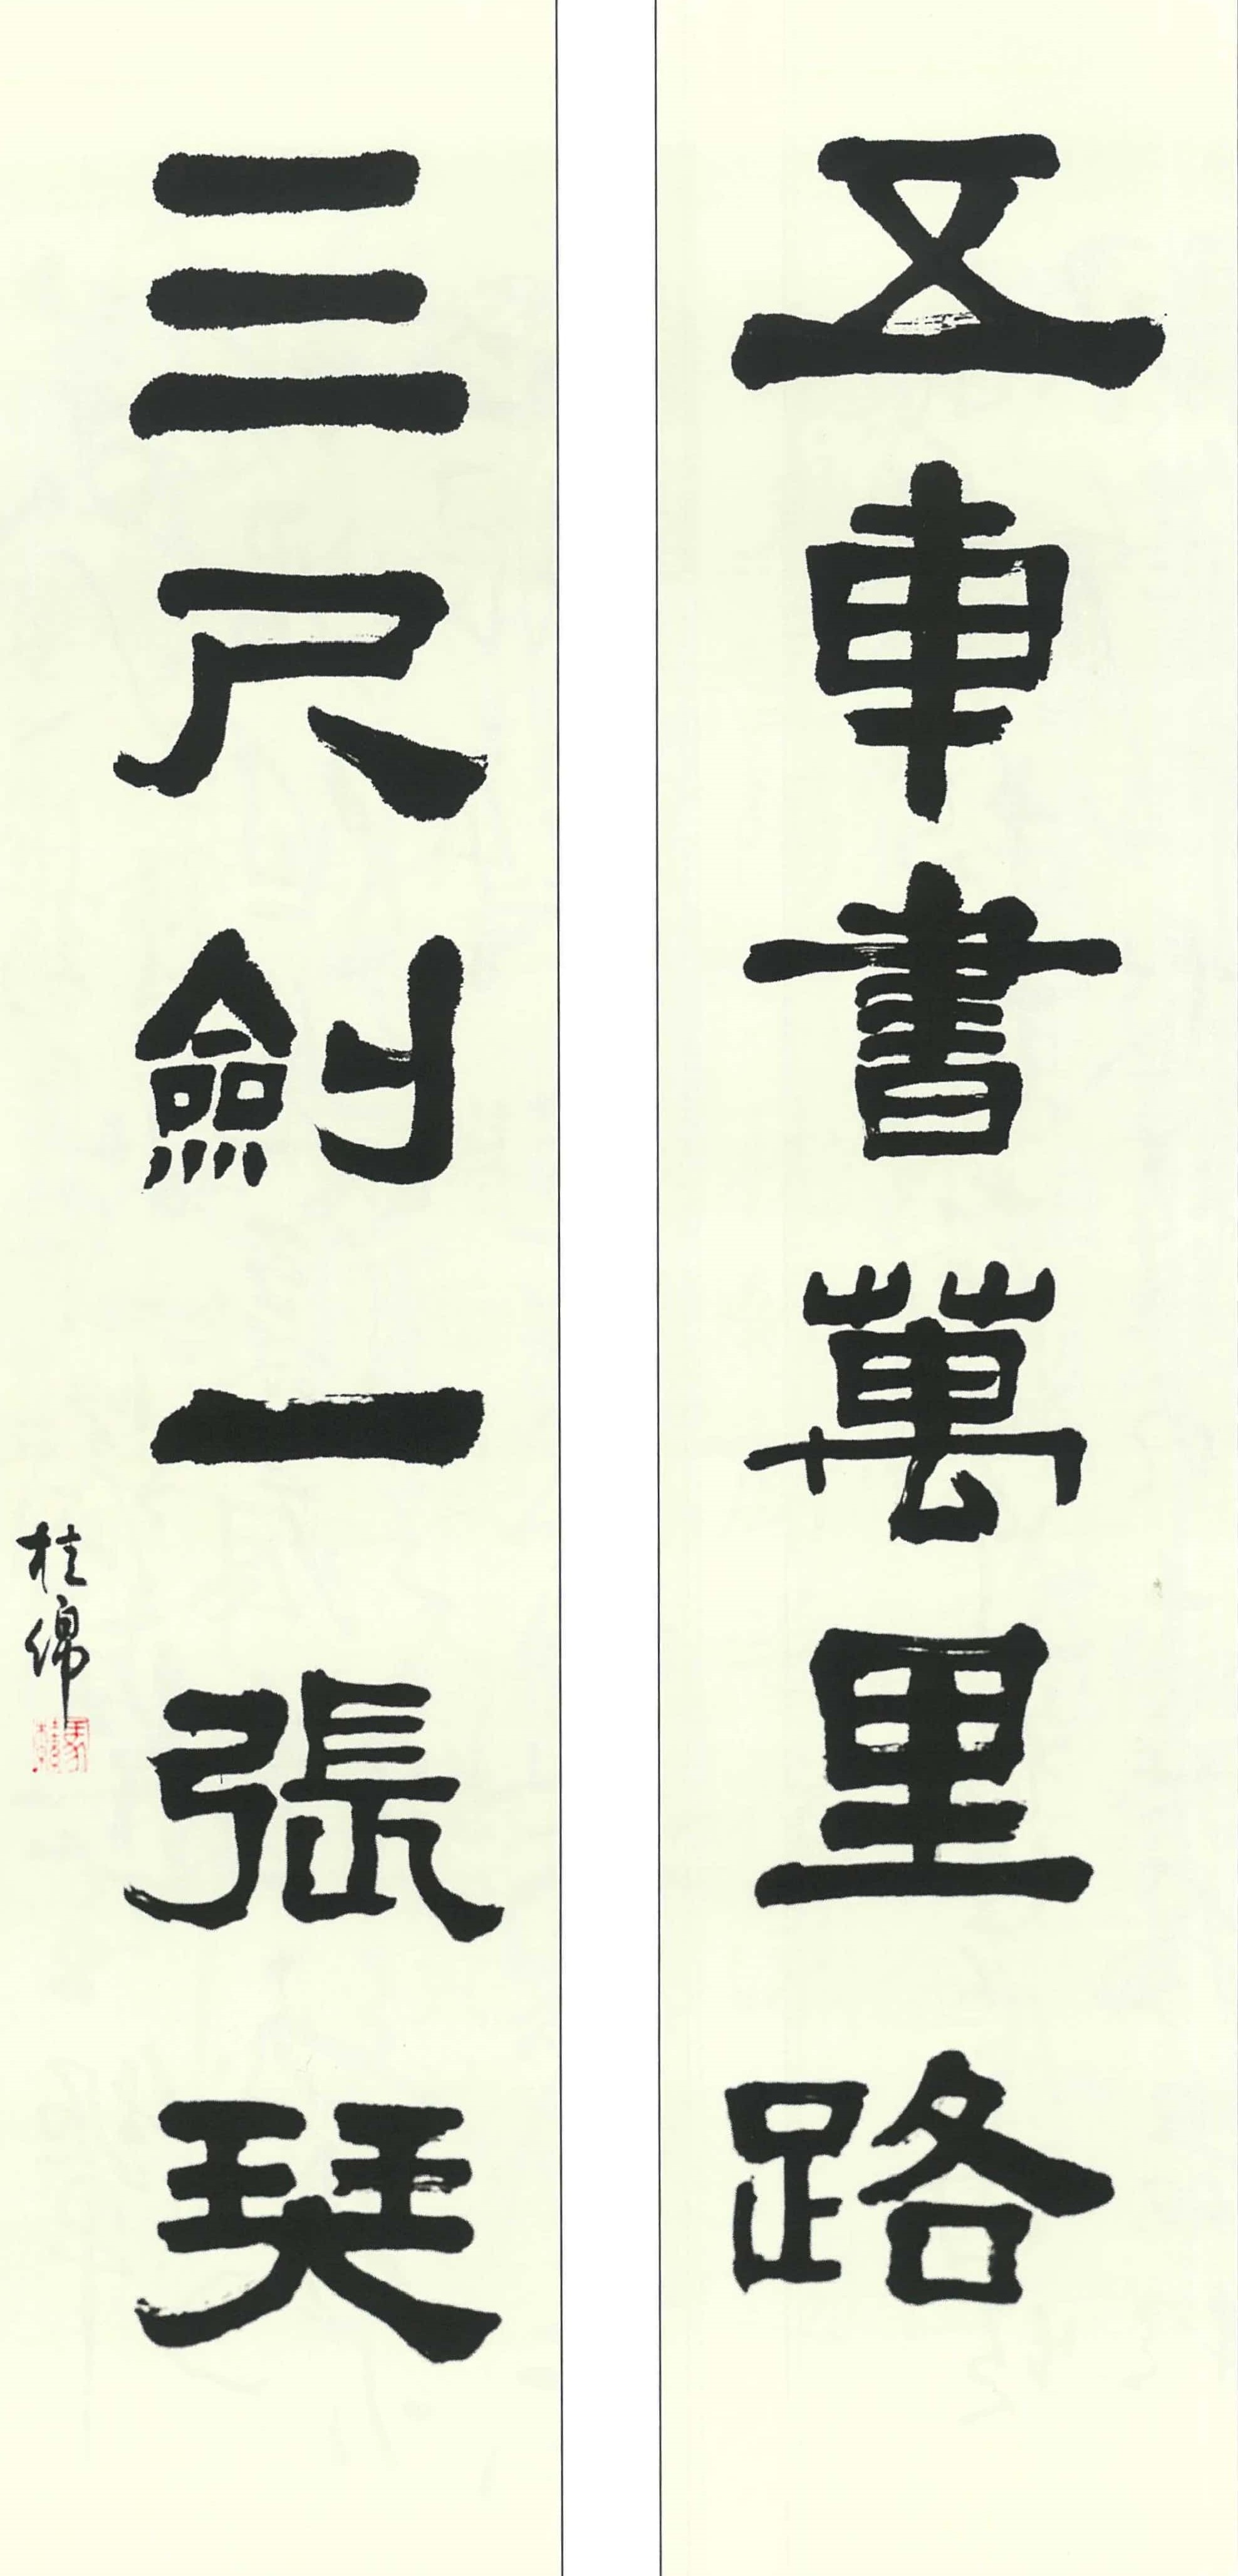 五車書萬里路
三尺劍一張琹
桂綿